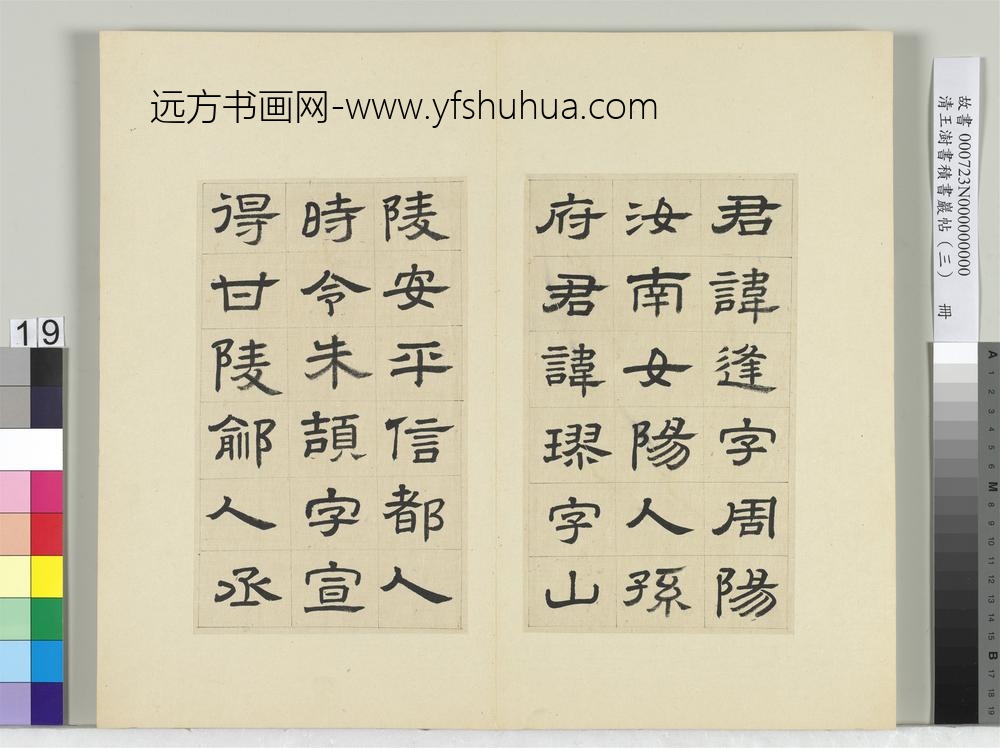 远方书画网-www.yfshuhua.com
故書 000723N000000000
清王澍書積書巖帖(三) 冊
君諱逢字周陽
汝南女陽人孫
府君諱璆字山
陵安平信都人
時令朱頡字宣
得甘陵鄃人丞
19
A 1 2 3 4 5 6 M 8 9 10 11 12 13 14 15 B 17 18 19